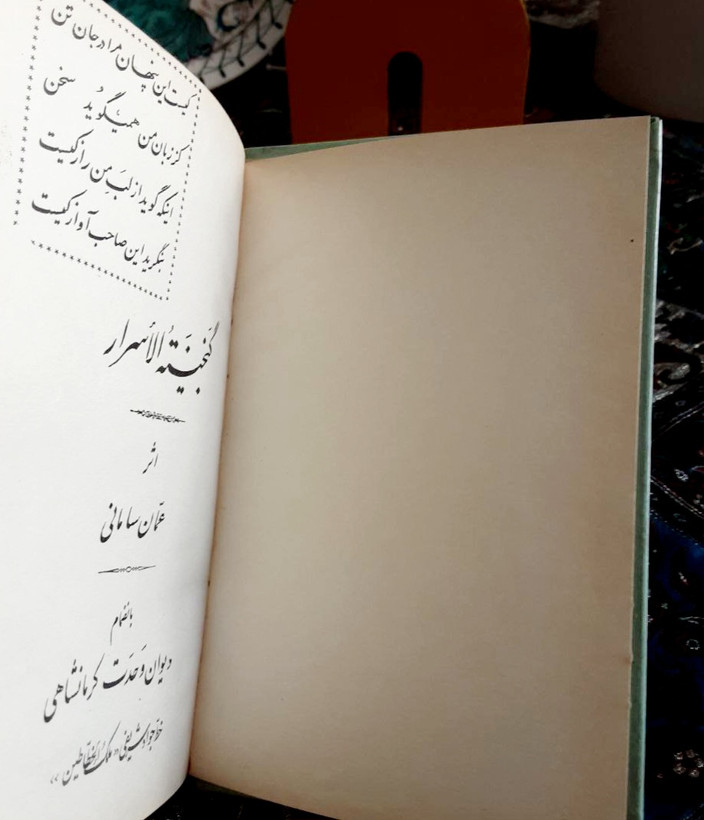 کیست این پنهان مرا در جان و تن
کز زبان من همیگوید سخن
اینکه گوید از لب من راز کیست
بنگرید این صاحب آواز کیست
گنجینة الأسرار
اثر
عمّان سامانی
بانضمام
دیوان وحدت کرمانشاهی
خط جواد شریفی «ملک الخطاطین»